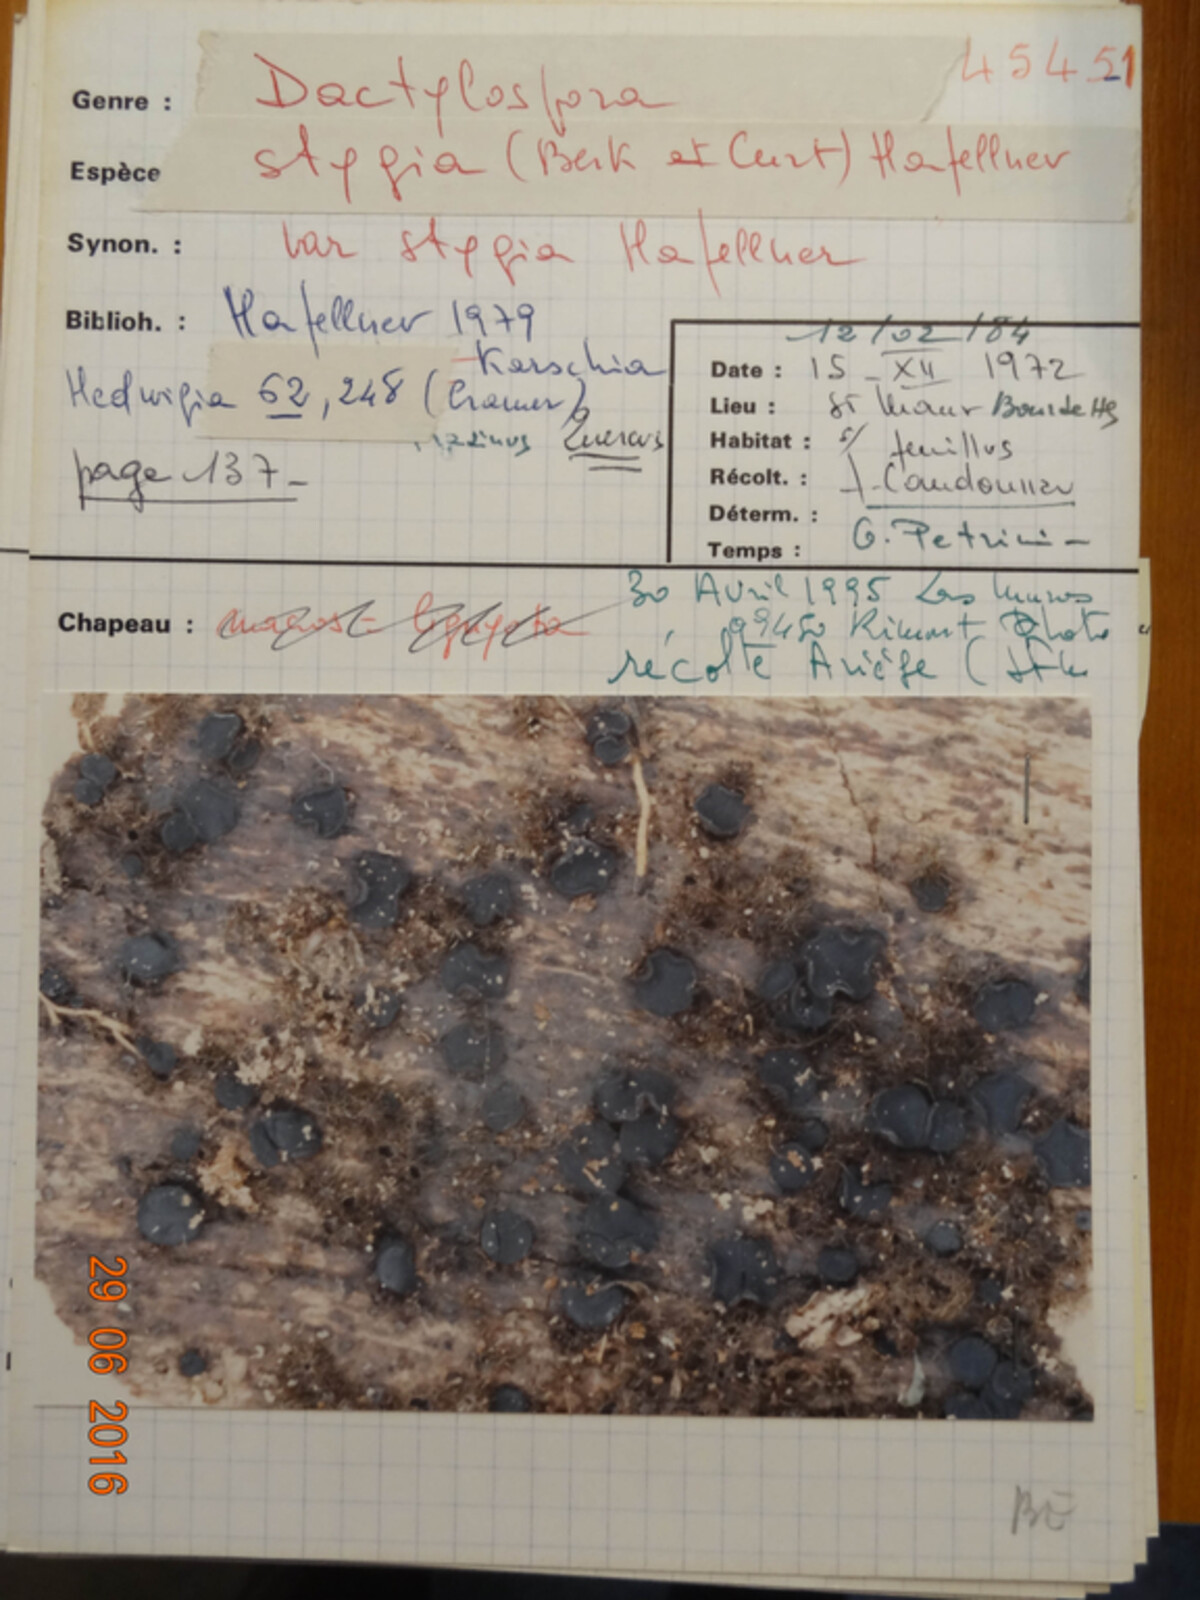 45451
Genre : Dactylospora
Espèce stygia (Berk et Curt) Hafellner
Synon. : var stygia Hafellner
Biblioh. : Hafellner 1979
Karschia
Hedwigia 62, 248 (Cramer)
Quercus
page 137_
12/02/84
Date : 15_ XII 1972
Lieu : St Maur
Habitat : s/ feuillus
Récolt. : J. Candoussau
Déterm. :
Temps : G. Petrini -
30 Avril 1995 Las Muros
Chapeau :
09450 Rimont Photo
récolte Ariège (
29 06 2016